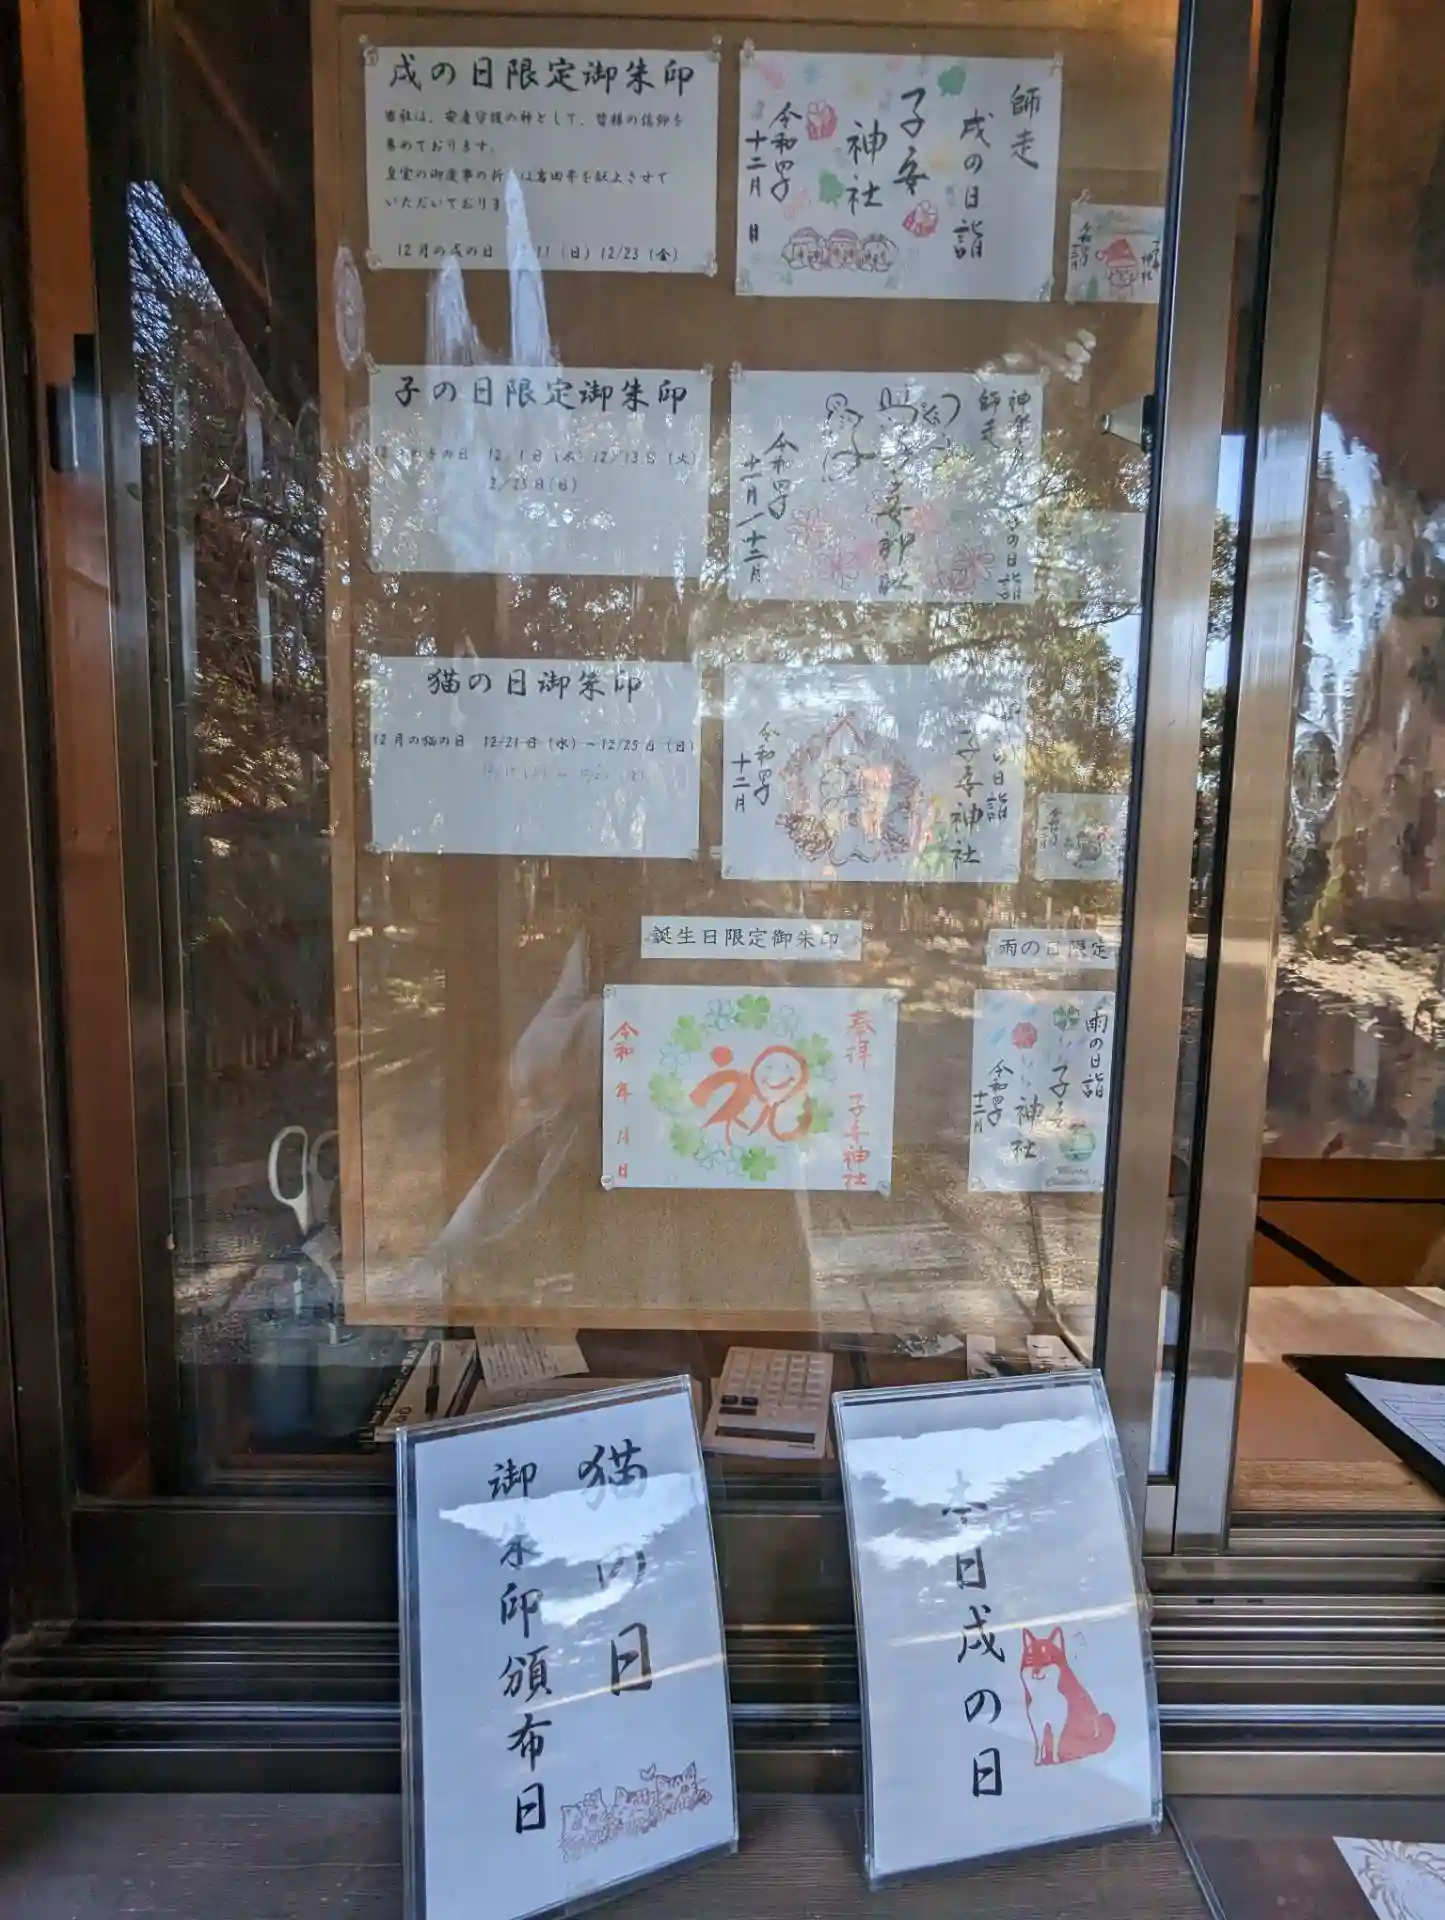 戌の日限定御朱印
当社は、安産守護の神として、皆様の信仰を
集めております。
皇室の御慶事の折には岩田帯を献上させて
いただいております
12月の戌の日 12/11（日）12/23（金）
師走
戌の日詣
子安
神社
令和四年
十二月 日
子の日限定御朱印
の日 12/1日（木）12/13日（火）
12/25日（日）
師走
子の日詣
子安神社
令和四年
十一月 十二月
猫の日御朱印
12月の猫の日 12/21日（水）～12/25日（日）
の日詣
子安神社
令和四年
十二月
誕生日限定御朱印
奉拝 子安神社
祝
令和 年 月 日
雨の日限定
雨の日詣
子安
神社
令和四年
十二月
猫の日
御朱印頒布日
本日戌の日